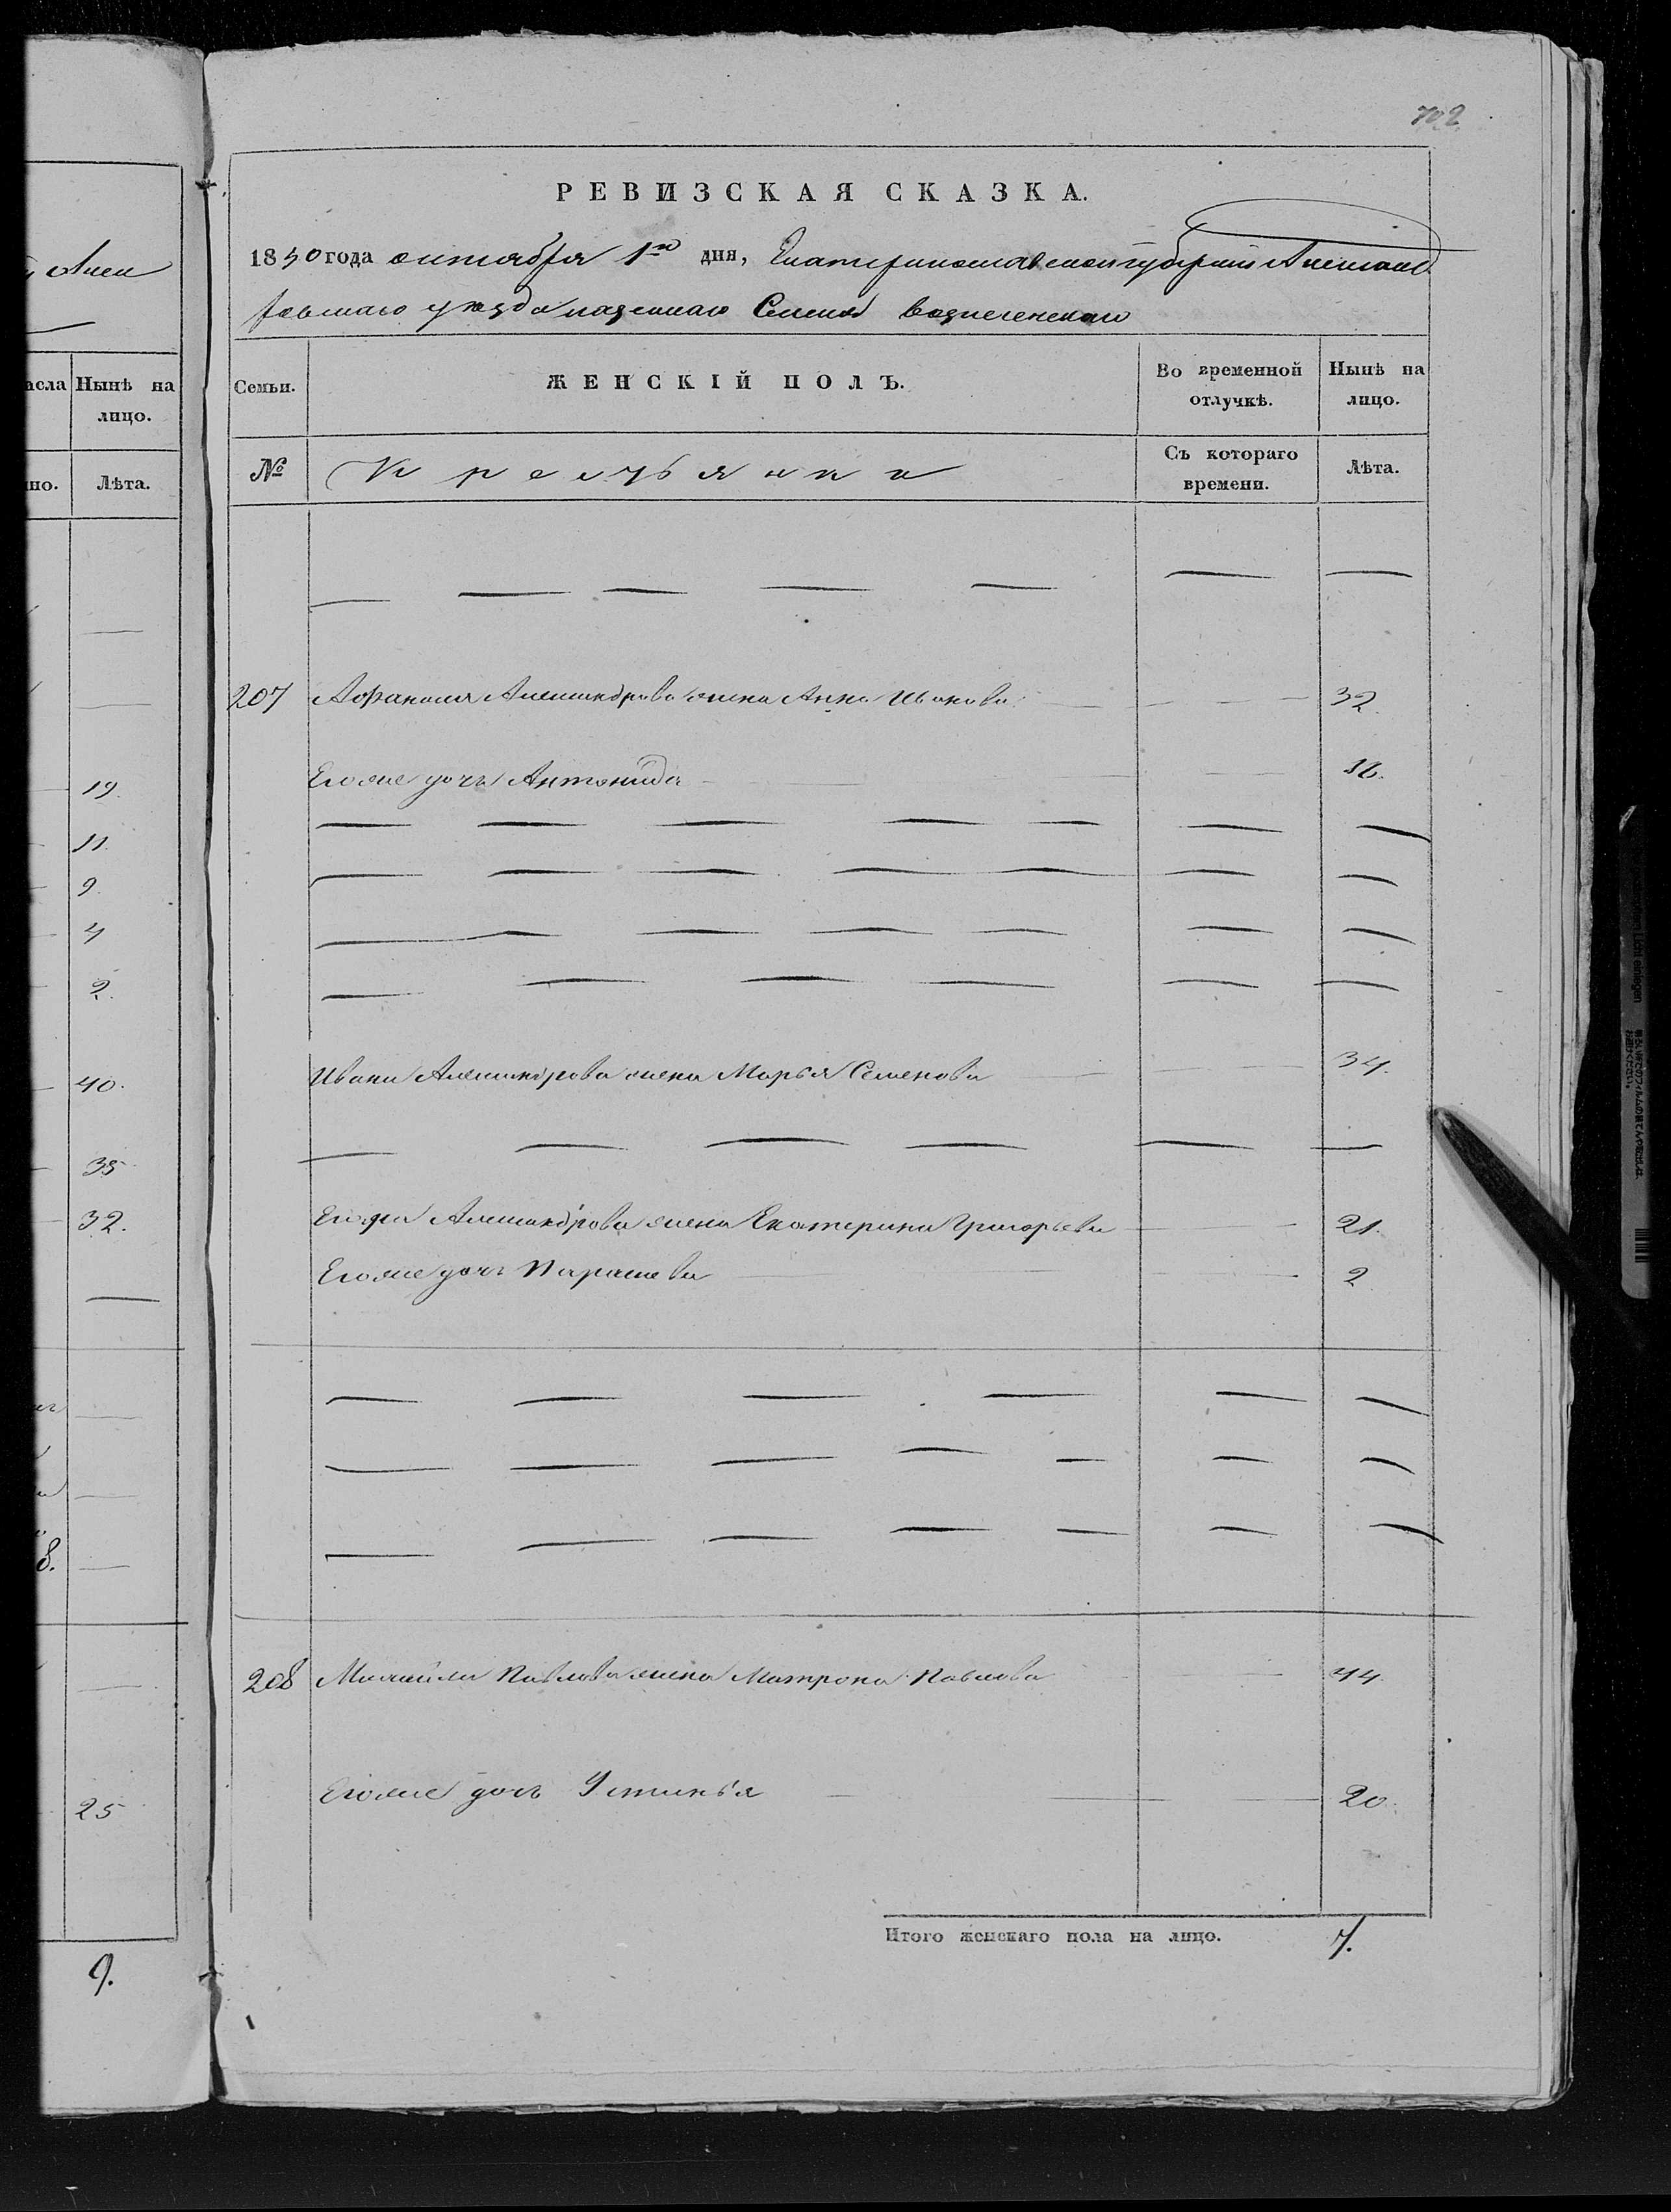 702
РЕВИЗСКАЯ СКАЗКА.
1850 года октября 1го дня, Екатеринославской губерніи Александ
ровскаго уѣзда казеннаго Селенія Вознесенскаго
Семьи. ЖЕНСКІЙ ПОЛЪ. Во временной отлучкѣ. Нынѣ на лицо.
№ Крестьянки Съ котораго времени. Лѣта.
207 Афанасія Александрова жена Анна Иванова 32
Его же дочь Антонида 16.
Ивана Александрова жена Марья Семенова 34.
Егора Александрова жена Екатерина Григорьева 21.
Его же дочь Парасковья 2
208 Михайла Павлова жена Матрона Павлова 44
Его же дочь Устинья 20
Итого женскаго пола на лицо. 7.
асла Нынѣ на лицо.
но. Лѣта.
19.
11.
9.
4
2.
40.
35
32.
8.
25
9.